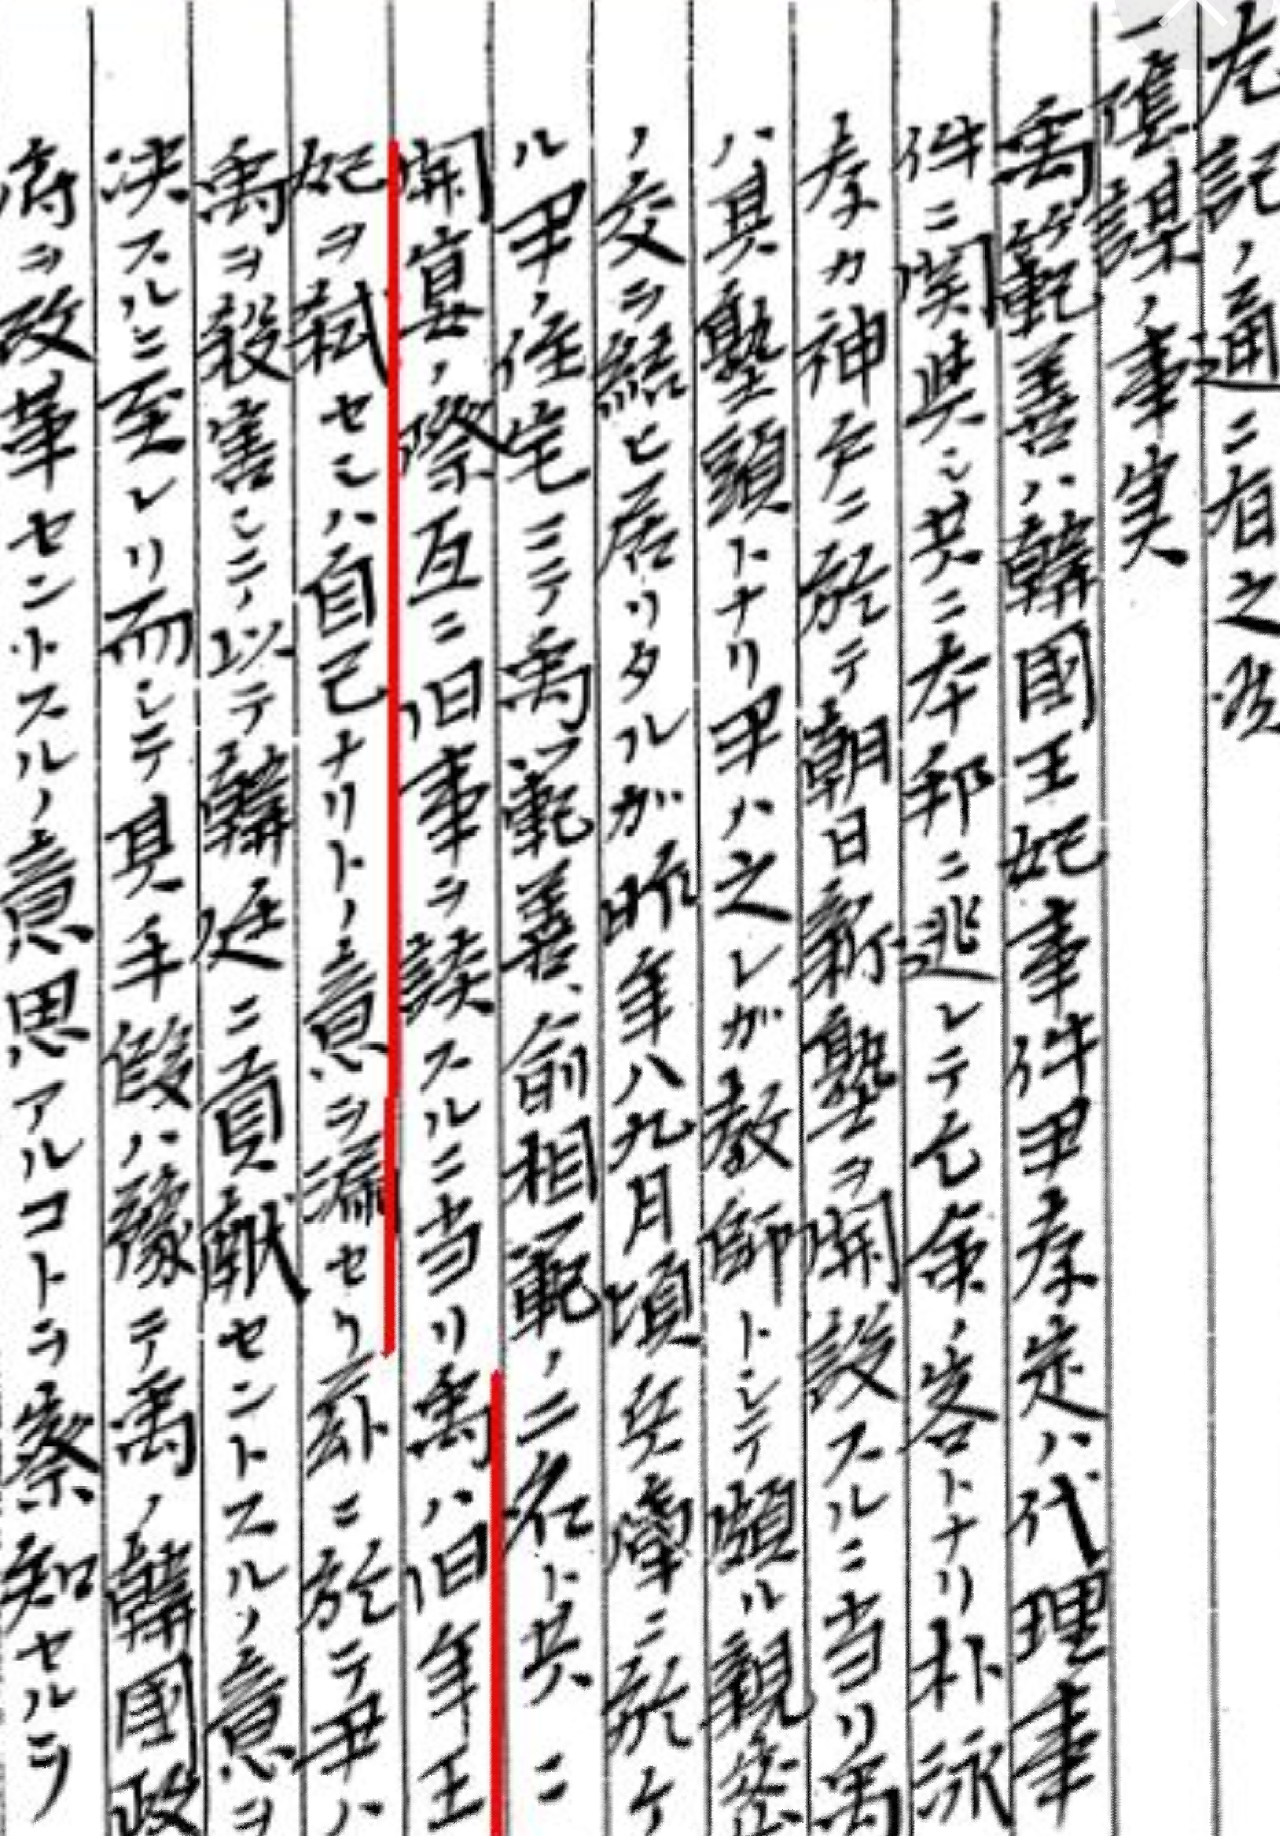 左記ノ通ニ有之候
一陰謀ノ事実
禹範善ハ韓國王妃事件尹孝定ハ代理事
件ニ関與シ共ニ本邦ニ逃レテ亡命ノ客トナリ朴泳
孝カ神戸ニ於テ朝日新塾ヲ開設スルニ当リ禹
ハ其塾頭トナリ尹ハ之レガ教師トシテ頗ル親密
ノ交ヲ結ヒ居リタルガ昨年八九月頃兵庫ニ於ケ
ル尹ノ住宅ニテ禹範善、俞相範ノ二名ト共ニ
開宴ノ際互ニ旧事ヲ談スルニ当リ禹ハ旧年王
妃ヲ弑セシハ自己ナリトノ意ヲ漏セリ玆ニ於テ尹ハ
禹ヲ殺害シテ以テ韓廷ニ貢献セントスルノ意ヲ
决スルニ至レリ而シテ其手段ハ豫テ禹ノ韓國政
府ヲ改革セントスルノ意思アルコトヲ察知セルヲ